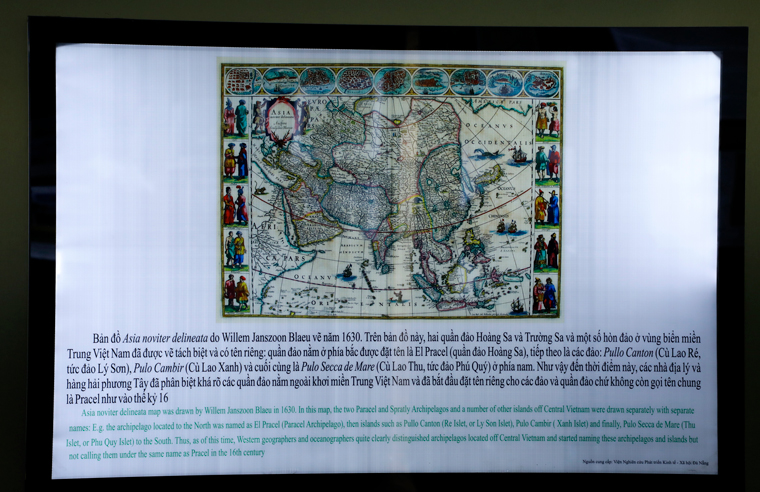 ASIA
noviter delineata
EVRO
PA
OCEANVS
OCCIDENTALIS
AFRI
CÆ PARS
OCEANVS
Bản đồ Asia noviter delineata do Willem Janszoon Blaeu vẽ năm 1630. Trên bản đồ này, hai quần đảo Hoàng Sa và Trường Sa và một số hòn đảo ở vùng biển miền
Trung Việt Nam đã được vẽ tách biệt và có tên riêng: quần đảo nằm ở phía bắc được đặt tên là El Pracel (quần đảo Hoàng Sa), tiếp theo là các đảo: Pullo Canton (Cù Lao Ré,
tức đảo Lý Sơn), Pulo Cambir (Cù Lao Xanh) và cuối cùng là Pulo Secca de Mare (Cù Lao Thu, tức đảo Phú Quý) ở phía nam. Như vậy đến thời điểm này, các nhà địa lý và
hàng hải phương Tây đã phân biệt khá rõ các quần đảo nằm ngoài khơi miền Trung Việt Nam và đã bắt đầu đặt tên riêng cho các đảo và quần đảo chứ không còn gọi tên chung
là Pracel như vào thế kỷ 16
Asia noviter delineata map was drawn by Willem Janszoon Blaeu in 1630. In this map, the two Paracel and Spratly Archipelagos and a number of other islands off Central Vietnam were drawn separately with separate
names: E.g. the archipelago located to the North was named as El Pracel (Paracel Archipelago), then islands such as Pullo Canton (Re Islet, or Ly Son Islet), Pulo Cambir ( Xanh Islet) and finally, Pulo Secca de Mare (Thu
Islet, or Phu Quy Islet) to the South. Thus, as of this time, Western geographers and oceanographers quite clearly distinguished archipelagos located off Central Vietnam and started naming these archipelagos and islands but
not calling them under the same name as Pracel in the 16th century
Nguồn cung cấp: Viện Nghiên cứu Phát triển Kinh tế - Xã hội Đà Nẵng